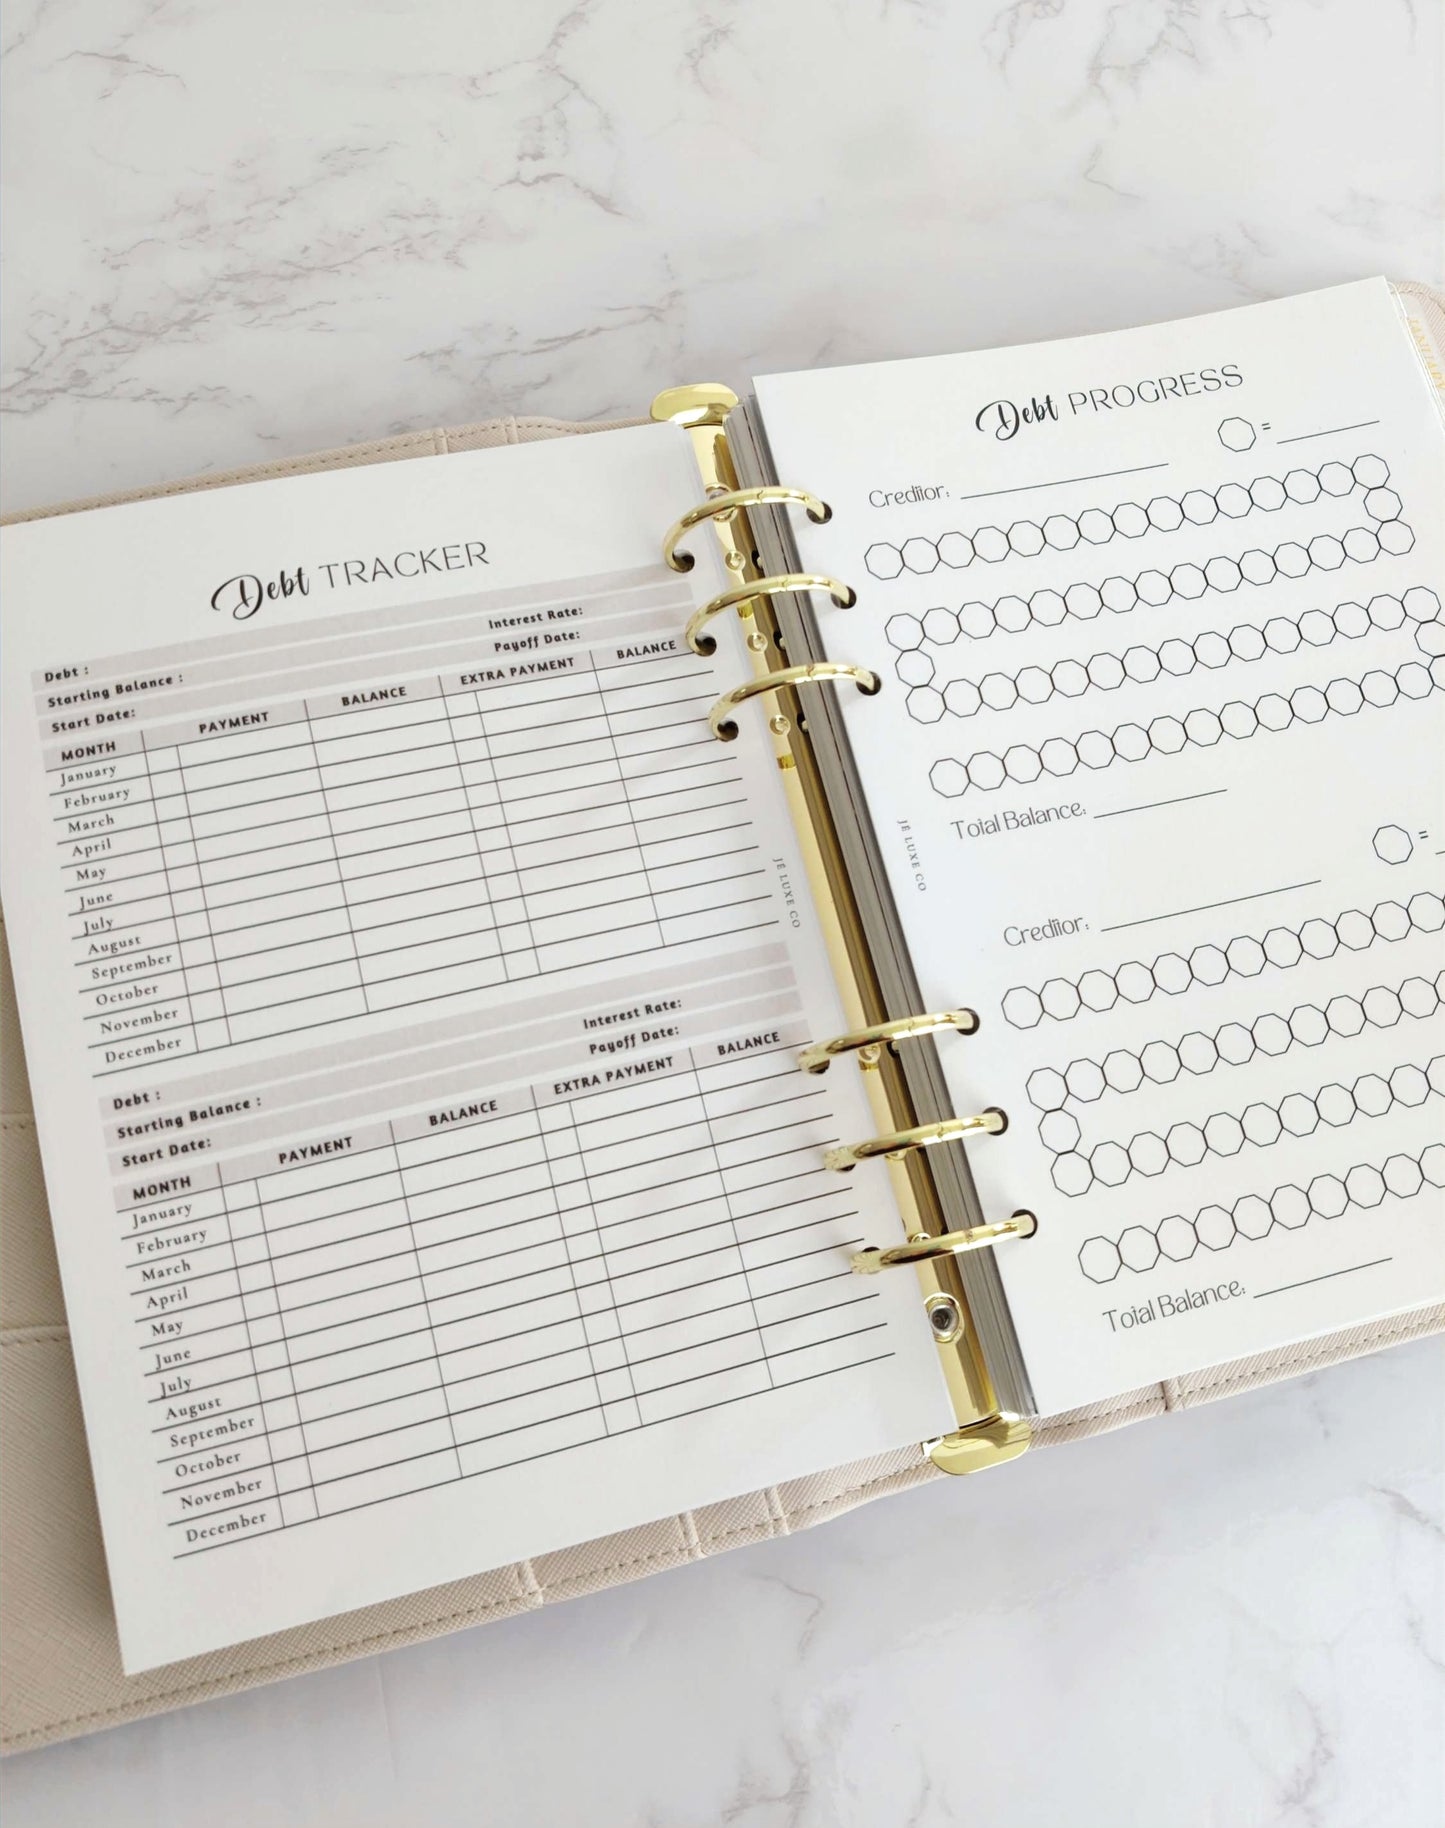 Debt TRACKER
Debt :
Starting Balance :
Interest Rate:
Start Date:
Payoff Date:
MONTH PAYMENT BALANCE EXTRA PAYMENT BALANCE
January
February
March
April
May
June
July
August
September
October
November
December
Debt :
Starting Balance :
Interest Rate:
Start Date:
Payoff Date:
MONTH PAYMENT BALANCE EXTRA PAYMENT BALANCE
January
February
March
April
May
June
July
August
September
October
November
December
JÉ LUXE CO
Debt PROGRESS
=
Creditor:
Total Balance:
=
Creditor:
Total Balance:
JÉ LUXE CO
JANUARY